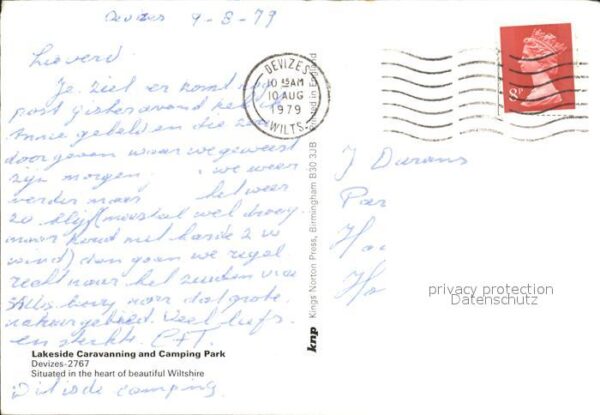 Devizes 9-8-79
Lieverd
Je ziet er komt nog
post gisteravond
gebeld en die zou
doorgeven waar we geweest
zijn morgen we weer
verder naar het weer
zo blijft meestal wel droog
maar koud met harde
wind) dan gaan we regel
recht naar het zuiden
naar dat grote
natuurgebied. Veel liefs.
en sterkte. C+T.
Lakeside Caravanning and Camping Park
Devizes-2767
Situated in the heart of beautiful Wiltshire
Dit is de camping.
DEVIZES
10 45 AM
10 AUG
1979
WILTS.
8P
Kings Norton Press, Birmingham B30 3JB Printed in England
knp
J Durans
Par
Ha
privacy protection
Datenschutz